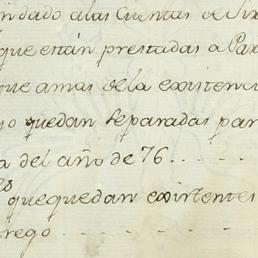 ndado alas Cuentas de Six
que están prestadas a Par
que amas dela existenci
o quedan separadas par
a del año de 76....
es quequedan existentes
rego.........